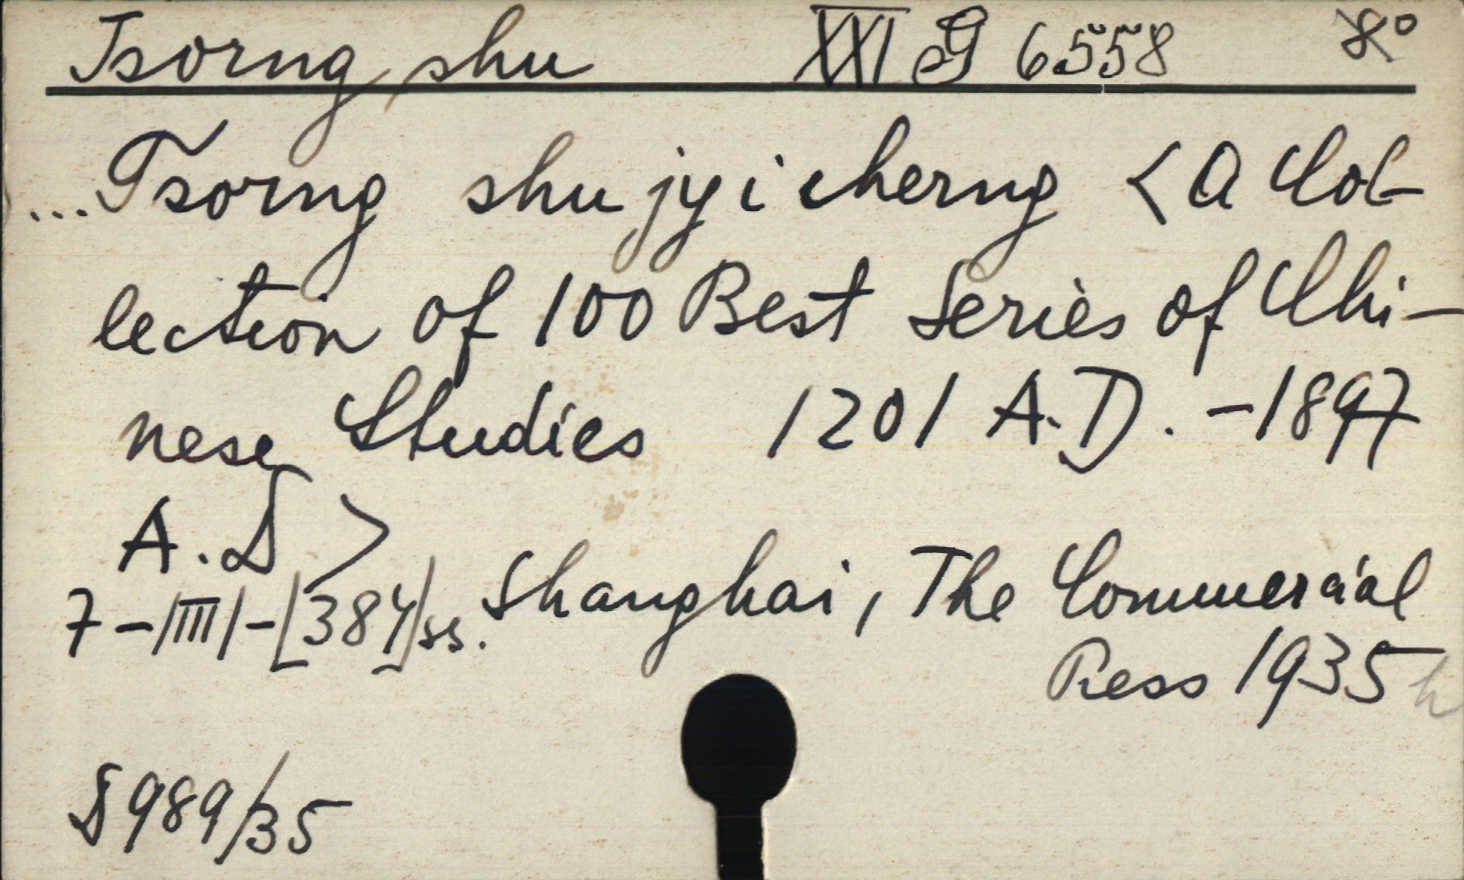 Tsorng shu XXI G 6558 8°
... Tsorng shu jyi cherng <A Col-
lection of 100 Best Series of Chi-
nese Studies 1201 A.D. -1897
A.D>
7-|III|-[384]ss. Shanghai, The Commercial
Press 1935 h
§ 989/35